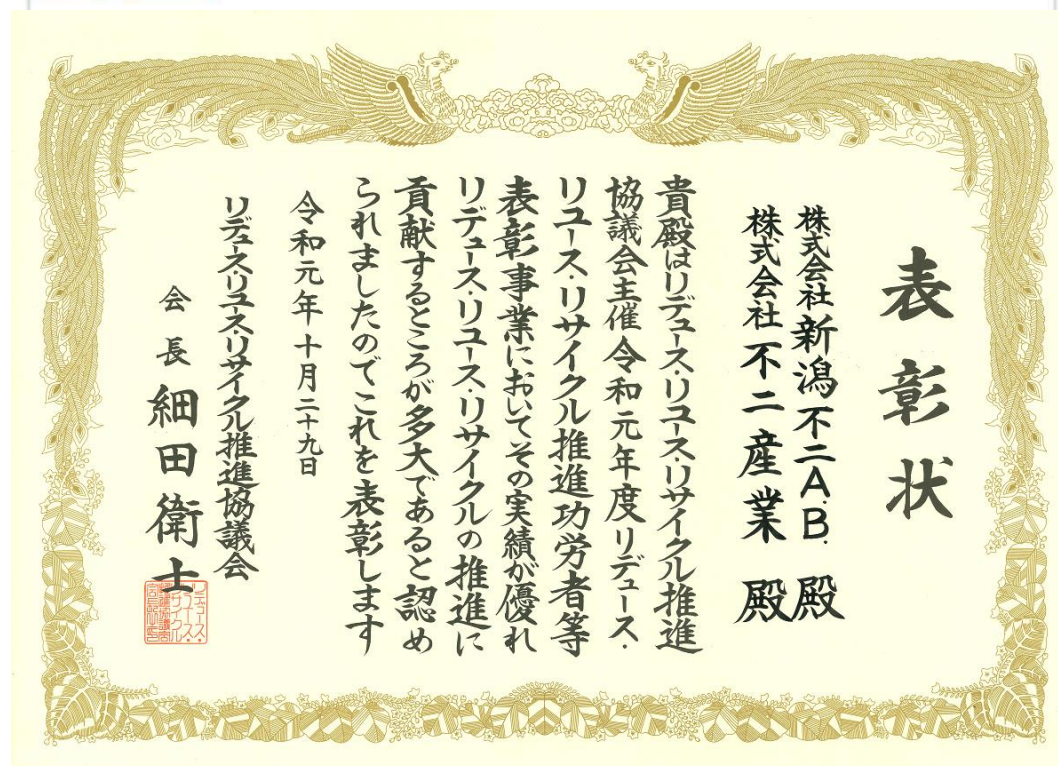 表彰状
株式会社新潟不二A.B. 殿
株式会社不二産業 殿
貴殿はリデュース・リユース・リサイクル推進
協議会主催 令和元年度リデュース・
リユース・リサイクル推進功労者等
表彰事業においてその実績が優れ
リデュース・リユース・リサイクルの推進に
貢献するところが多大であると認め
られましたのでこれを表彰します
令和元年十月二十九日
リデュース・リユース・リサイクル推進協議会
会長 細田衛士